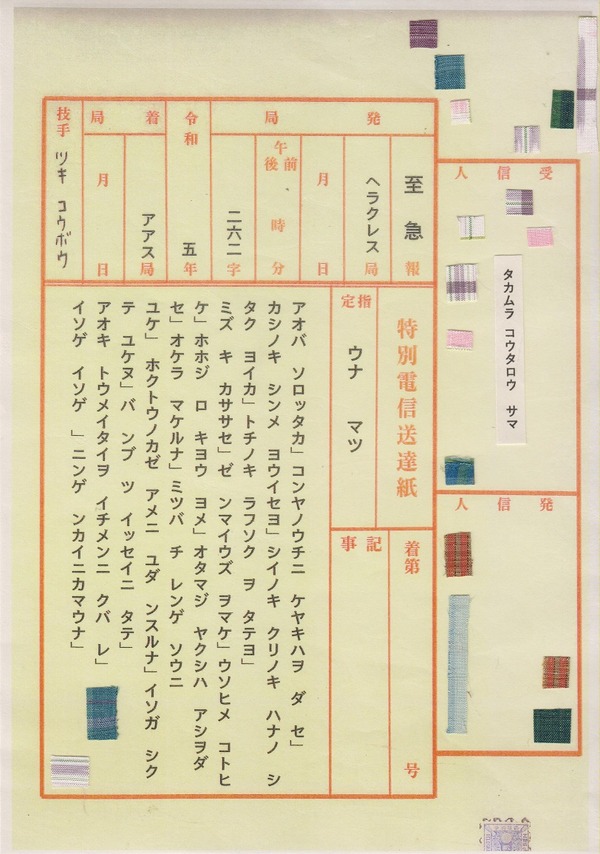 受信人
タカムラ コウタロウ サマ
発信人
発局
至急報
ヘラクレス局
月日
午前後時分
二六二字
令和五年
着局
アアス局
月日
技手 ツキ コウボウ
特別電信送達紙
指定
ウナ マツ
着第 号
記事
アオバ ソロッタカ」コンヤノウチニ ケヤキハヲ ダ セ」
カシノキ シンメ ヨウイセヨ」シイノキ クリノキ ハナノ シ
タク ヨイカ」トチノキ ラフソク ヲ タテヨ」
ミズ キ カササセ」ゼ ンマイウズ ヲマケ」ウソヒメ コトヒ
ケ」ホホジ ロ キヨウ ヨメ」オタマジ ヤクシハ アシヲダ
セ」オケラ マケルナ」ミツバ チ レンゲ ソウニ
ユケ」 ホクトウノカゼ アメニ ユダ ンスルナ」イソガ シク
テ ユケヌ」バ ンブ ツ イッセイニ タテ」
アオキ トウメイタイヲ イチメンニ クバ レ」
イソゲ イソゲ 」ニンゲ ンカイニカマウナ」